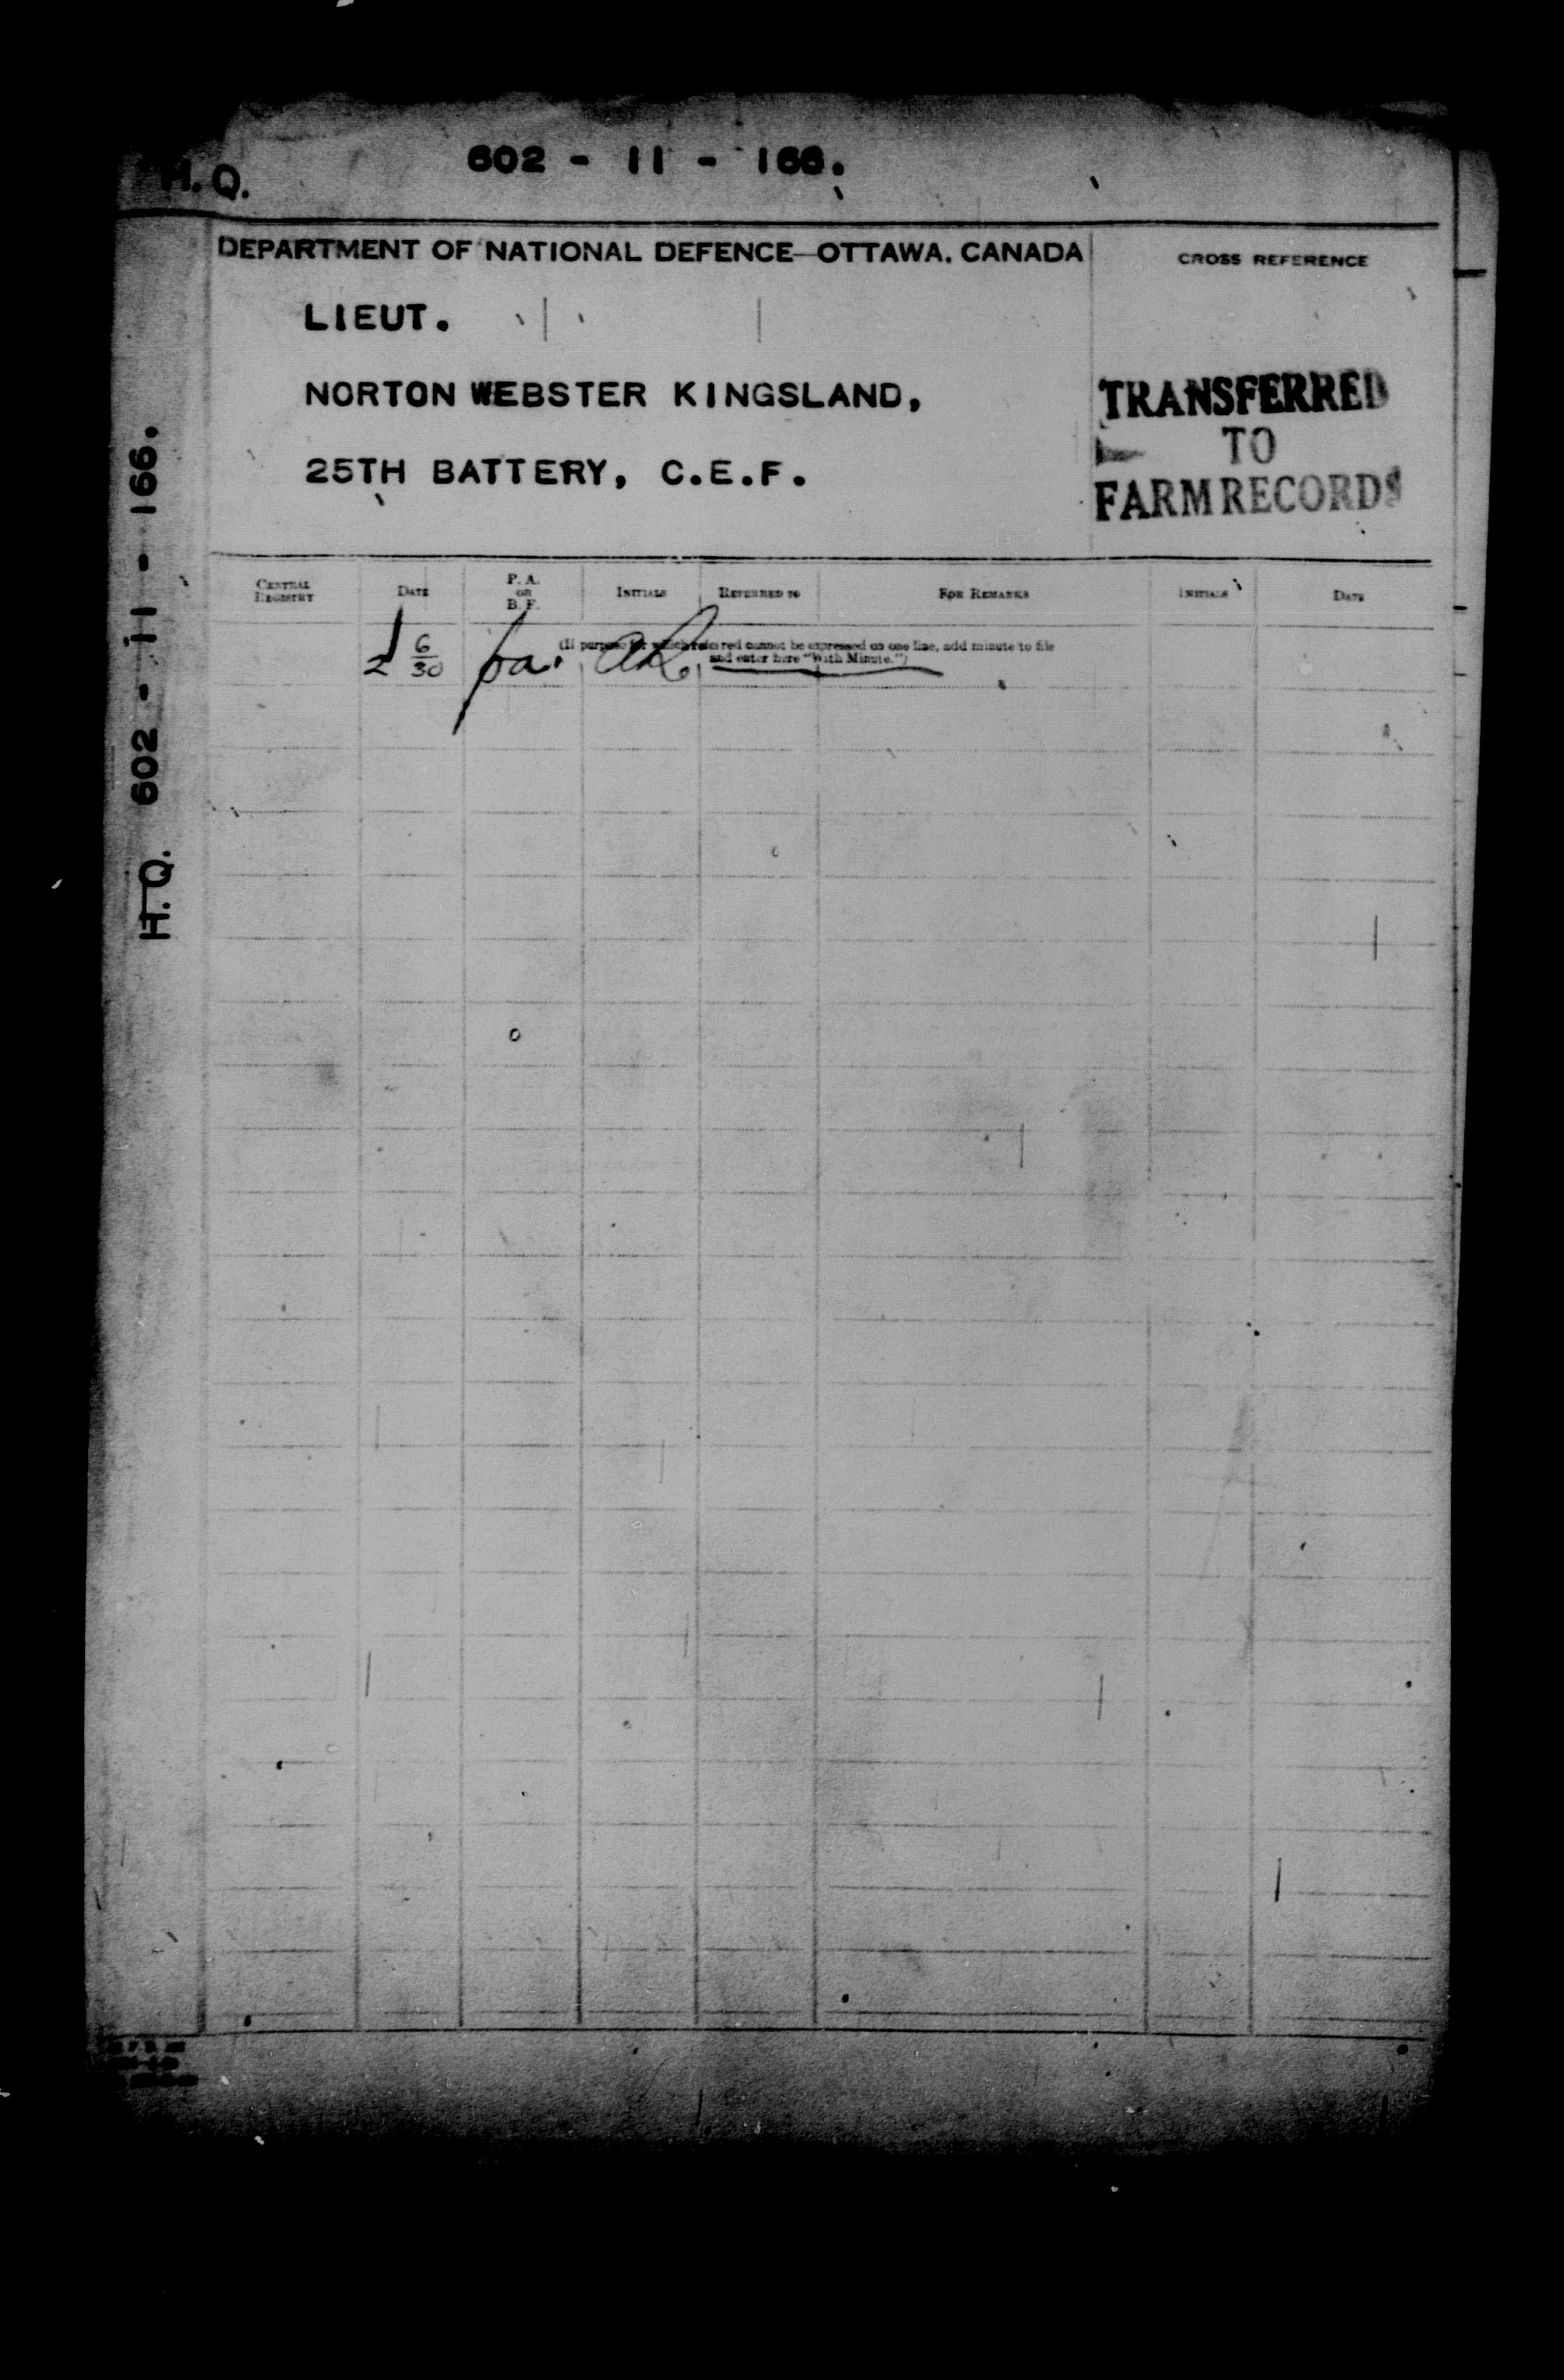 H.Q. 602 - 11 - 166.
DEPARTMENT OF NATIONAL DEFENCE—OTTAWA, CANADA
CROSS REFERENCE
LIEUT.
NORTON WEBSTER KINGSLAND,
25TH BATTERY, C.E.F.
TRANSFERRED
TO
FARM RECORDS
H.Q. 602 - 11 - 166.
CENTRAL REGISTRY
DATE
P. A. OR B. F.
INITIALS
REFERRED TO
FOR REMARKS
INITIALS
DATE
(If purpose for which referred cannot be expressed on one line, add minute to file
and enter here "With Minute.")
2 6/30 pa.